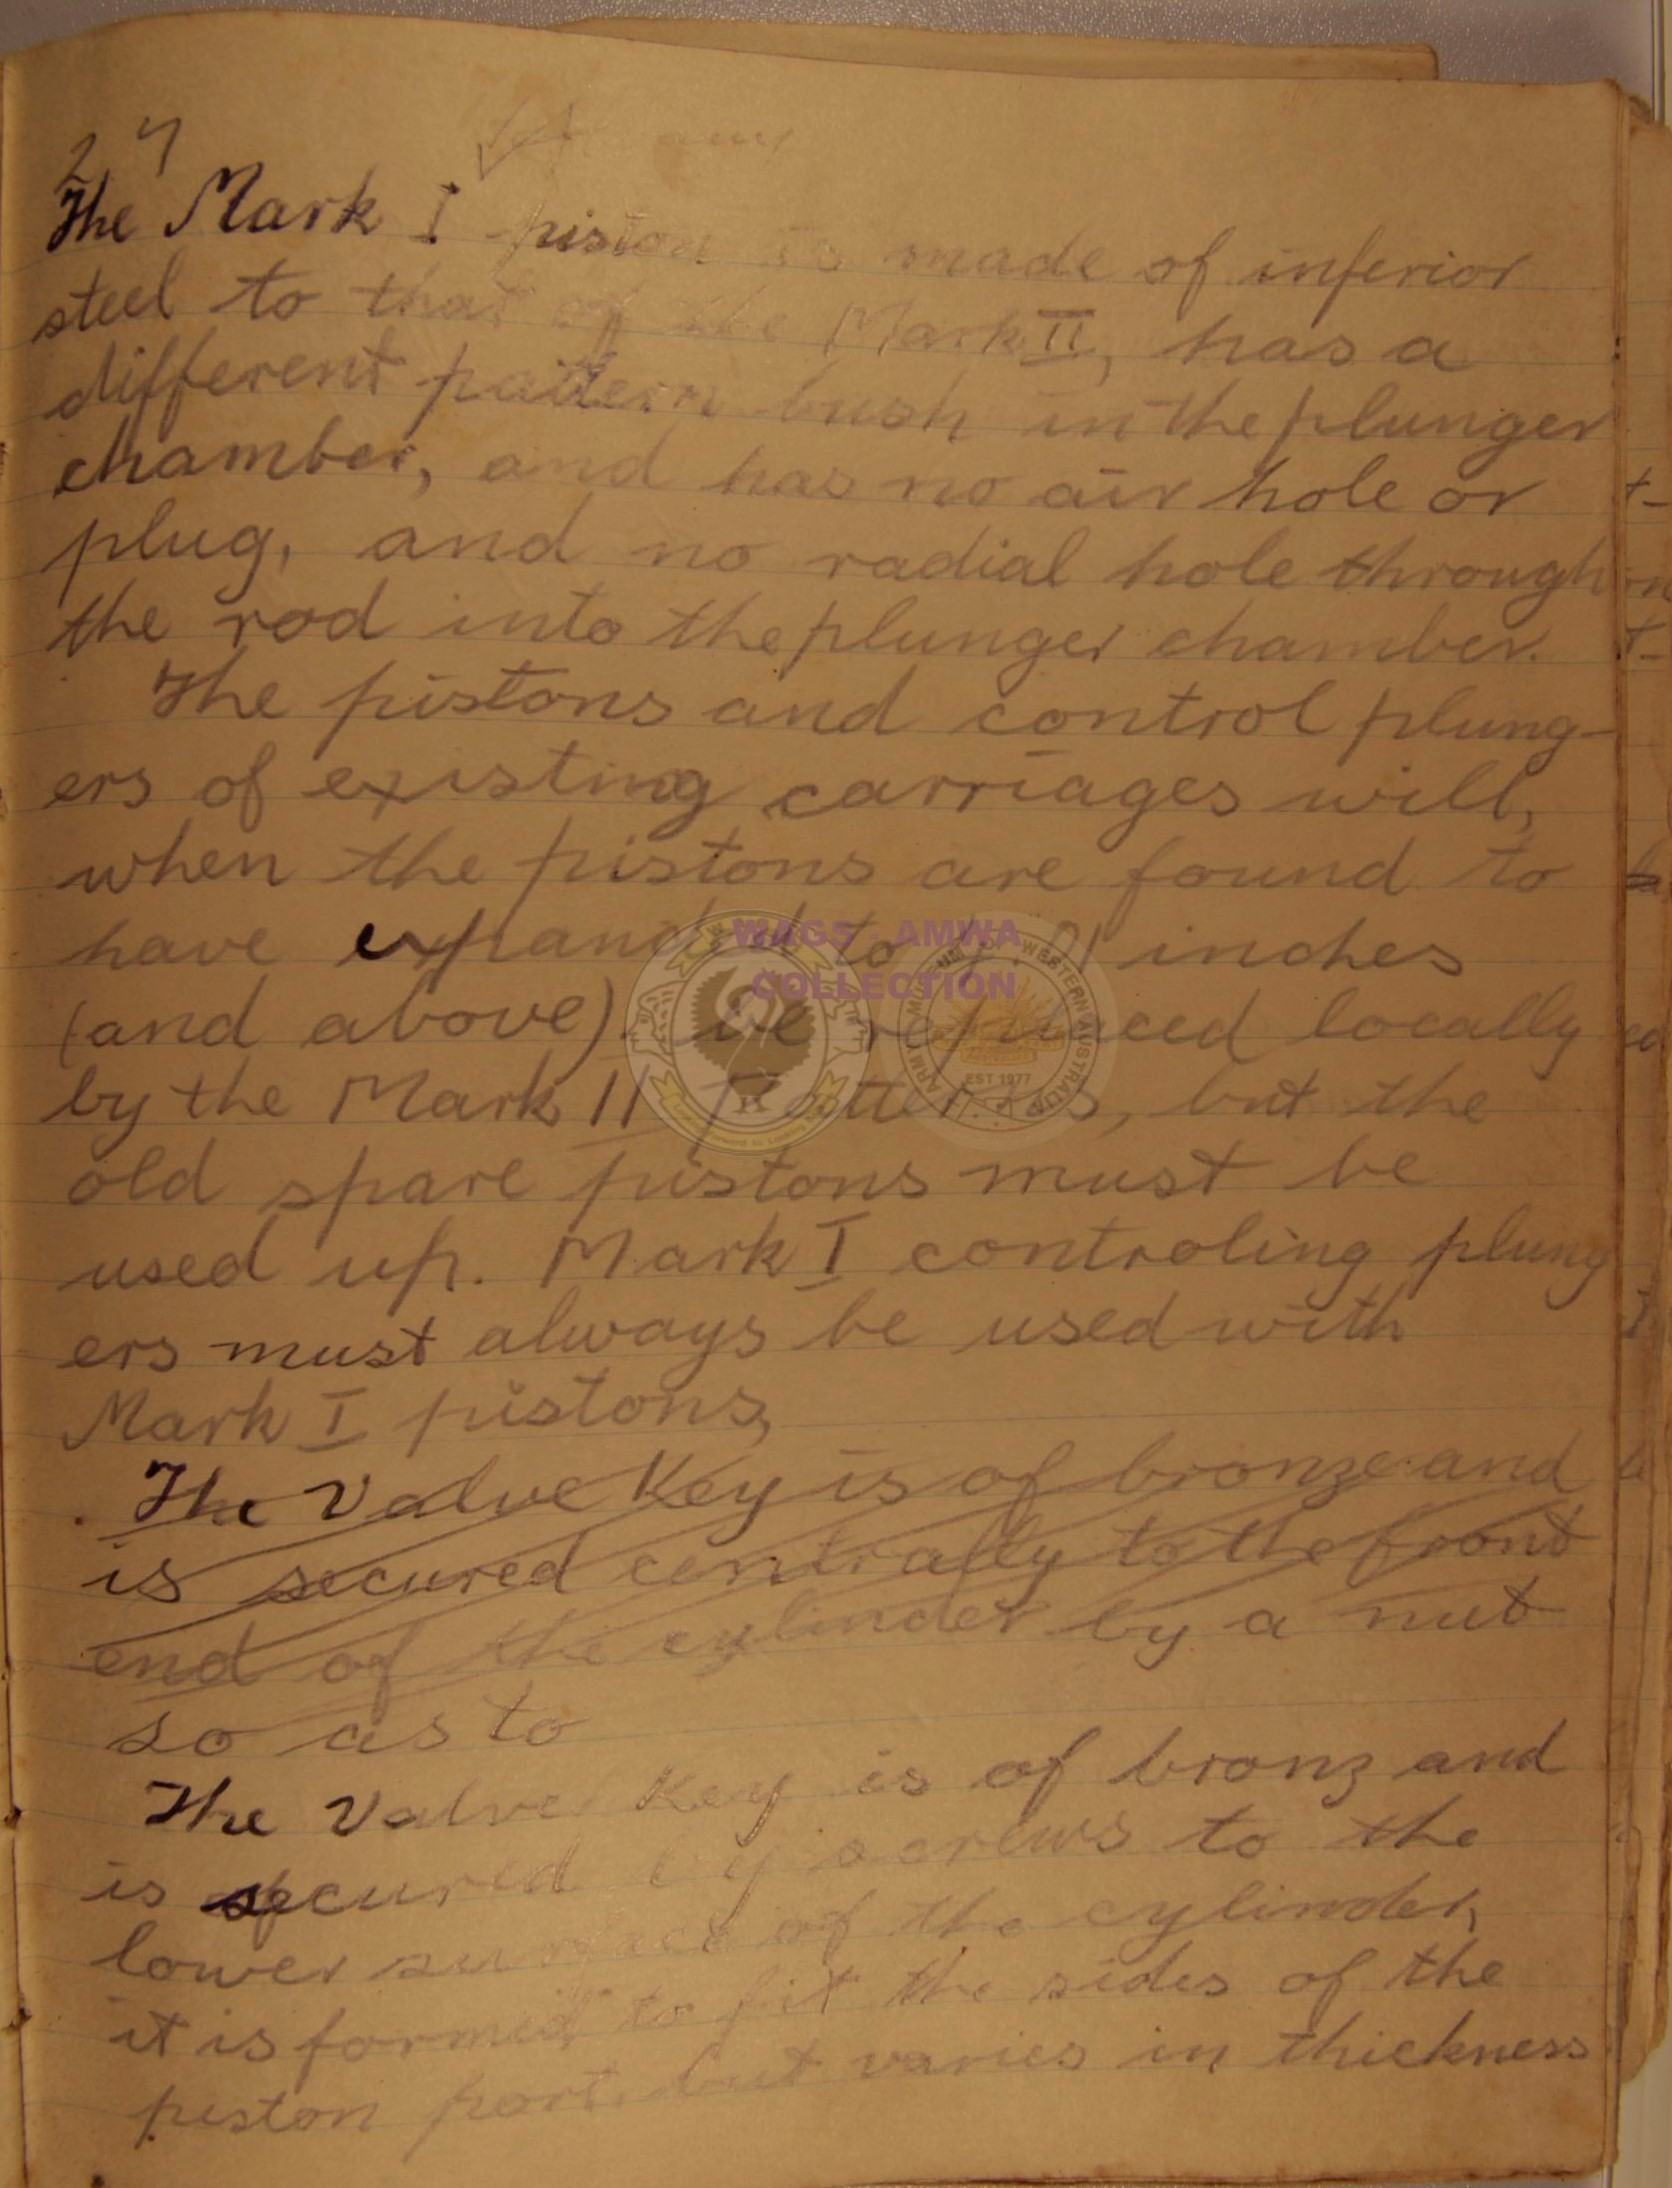 27
The Mark I piston is made of inferior
steel to that of the Mark II, has a
different pattern bush in the plunger
chamber, and has no air hole or
plug, and no radial hole through
the rod into the plunger chamber.
The pistons and control plung-
ers of existing carriages will,
when the pistons are found to
have expanded to inches
(and above) be replaced locally
by the Mark II patterns, but the
old spare pistons must be
used up. Mark I controling plung
ers must always be used with
Mark I pistons,
The Valve Key is of bronze and
is secured centrally to the front
end of the cylinder by a nut
so as to
The Valve Key is of bronz and
is secured by screws to the
lower surface of the cylinder,
it is formed to fit the sides of the
piston port, but varies in thickness
WAGS - AMWA
COLLECTION
WESTERN AUSTRALIA
EST 1977